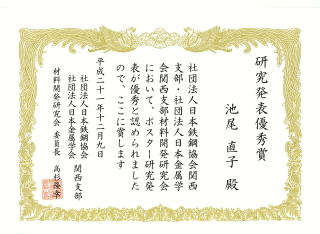 研究発表優秀賞
池尾 直子 殿
社団法人日本鉄鋼協会関西
支部・社団法人日本金属学
会関西支部材料開発研究会
において、ポスター研究発
表が優秀と認められました
ので、ここに賞します
平成二十一年十二月九日
社団法人日本鉄鋼協会
社団法人日本金属学会
関西支部
材料開発研究会 委員長 高杉隆幸